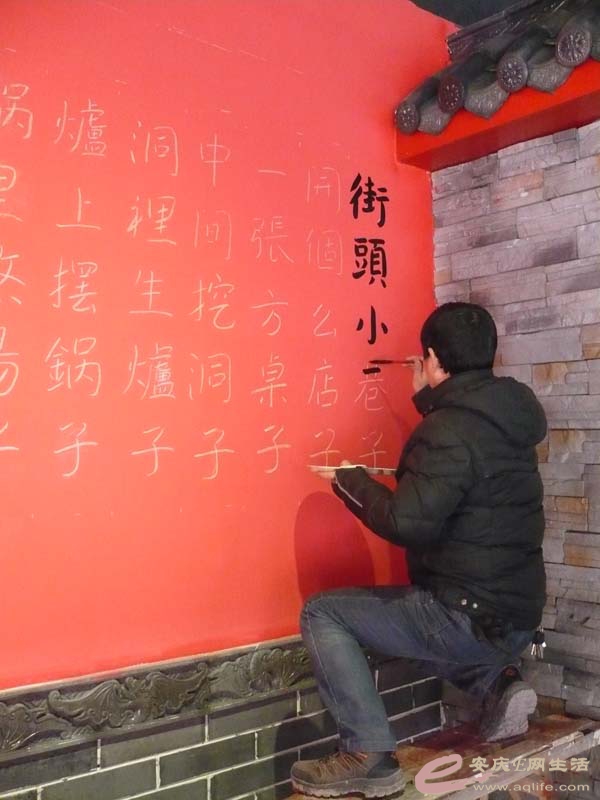 街頭小巷子
開個么店子
一張方桌子
中间挖洞子
洞裡生爐子
爐上摆鍋子
里
安庆e网生活
www.aqlife.com